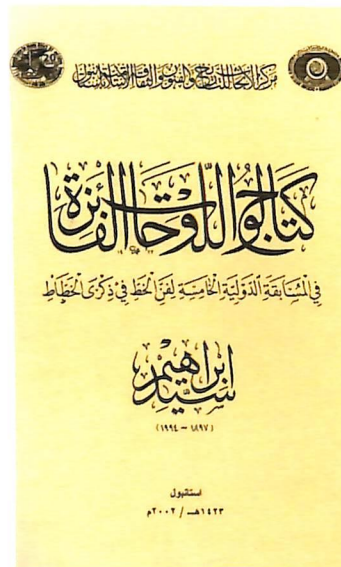 مركز الأبحاث للتاريخ والفنون والثقافة الإسلامية باستانبول
كتالوج اللوحات الفائزة
في المسابقة الدولية الخامسة لفن الخط في ذكرى الخطاط
سيد إبراهيم
(١٨٩٧ – ١٩٩٤)
استانبول
١٤٢٣هـ / ٢٠٠٢م